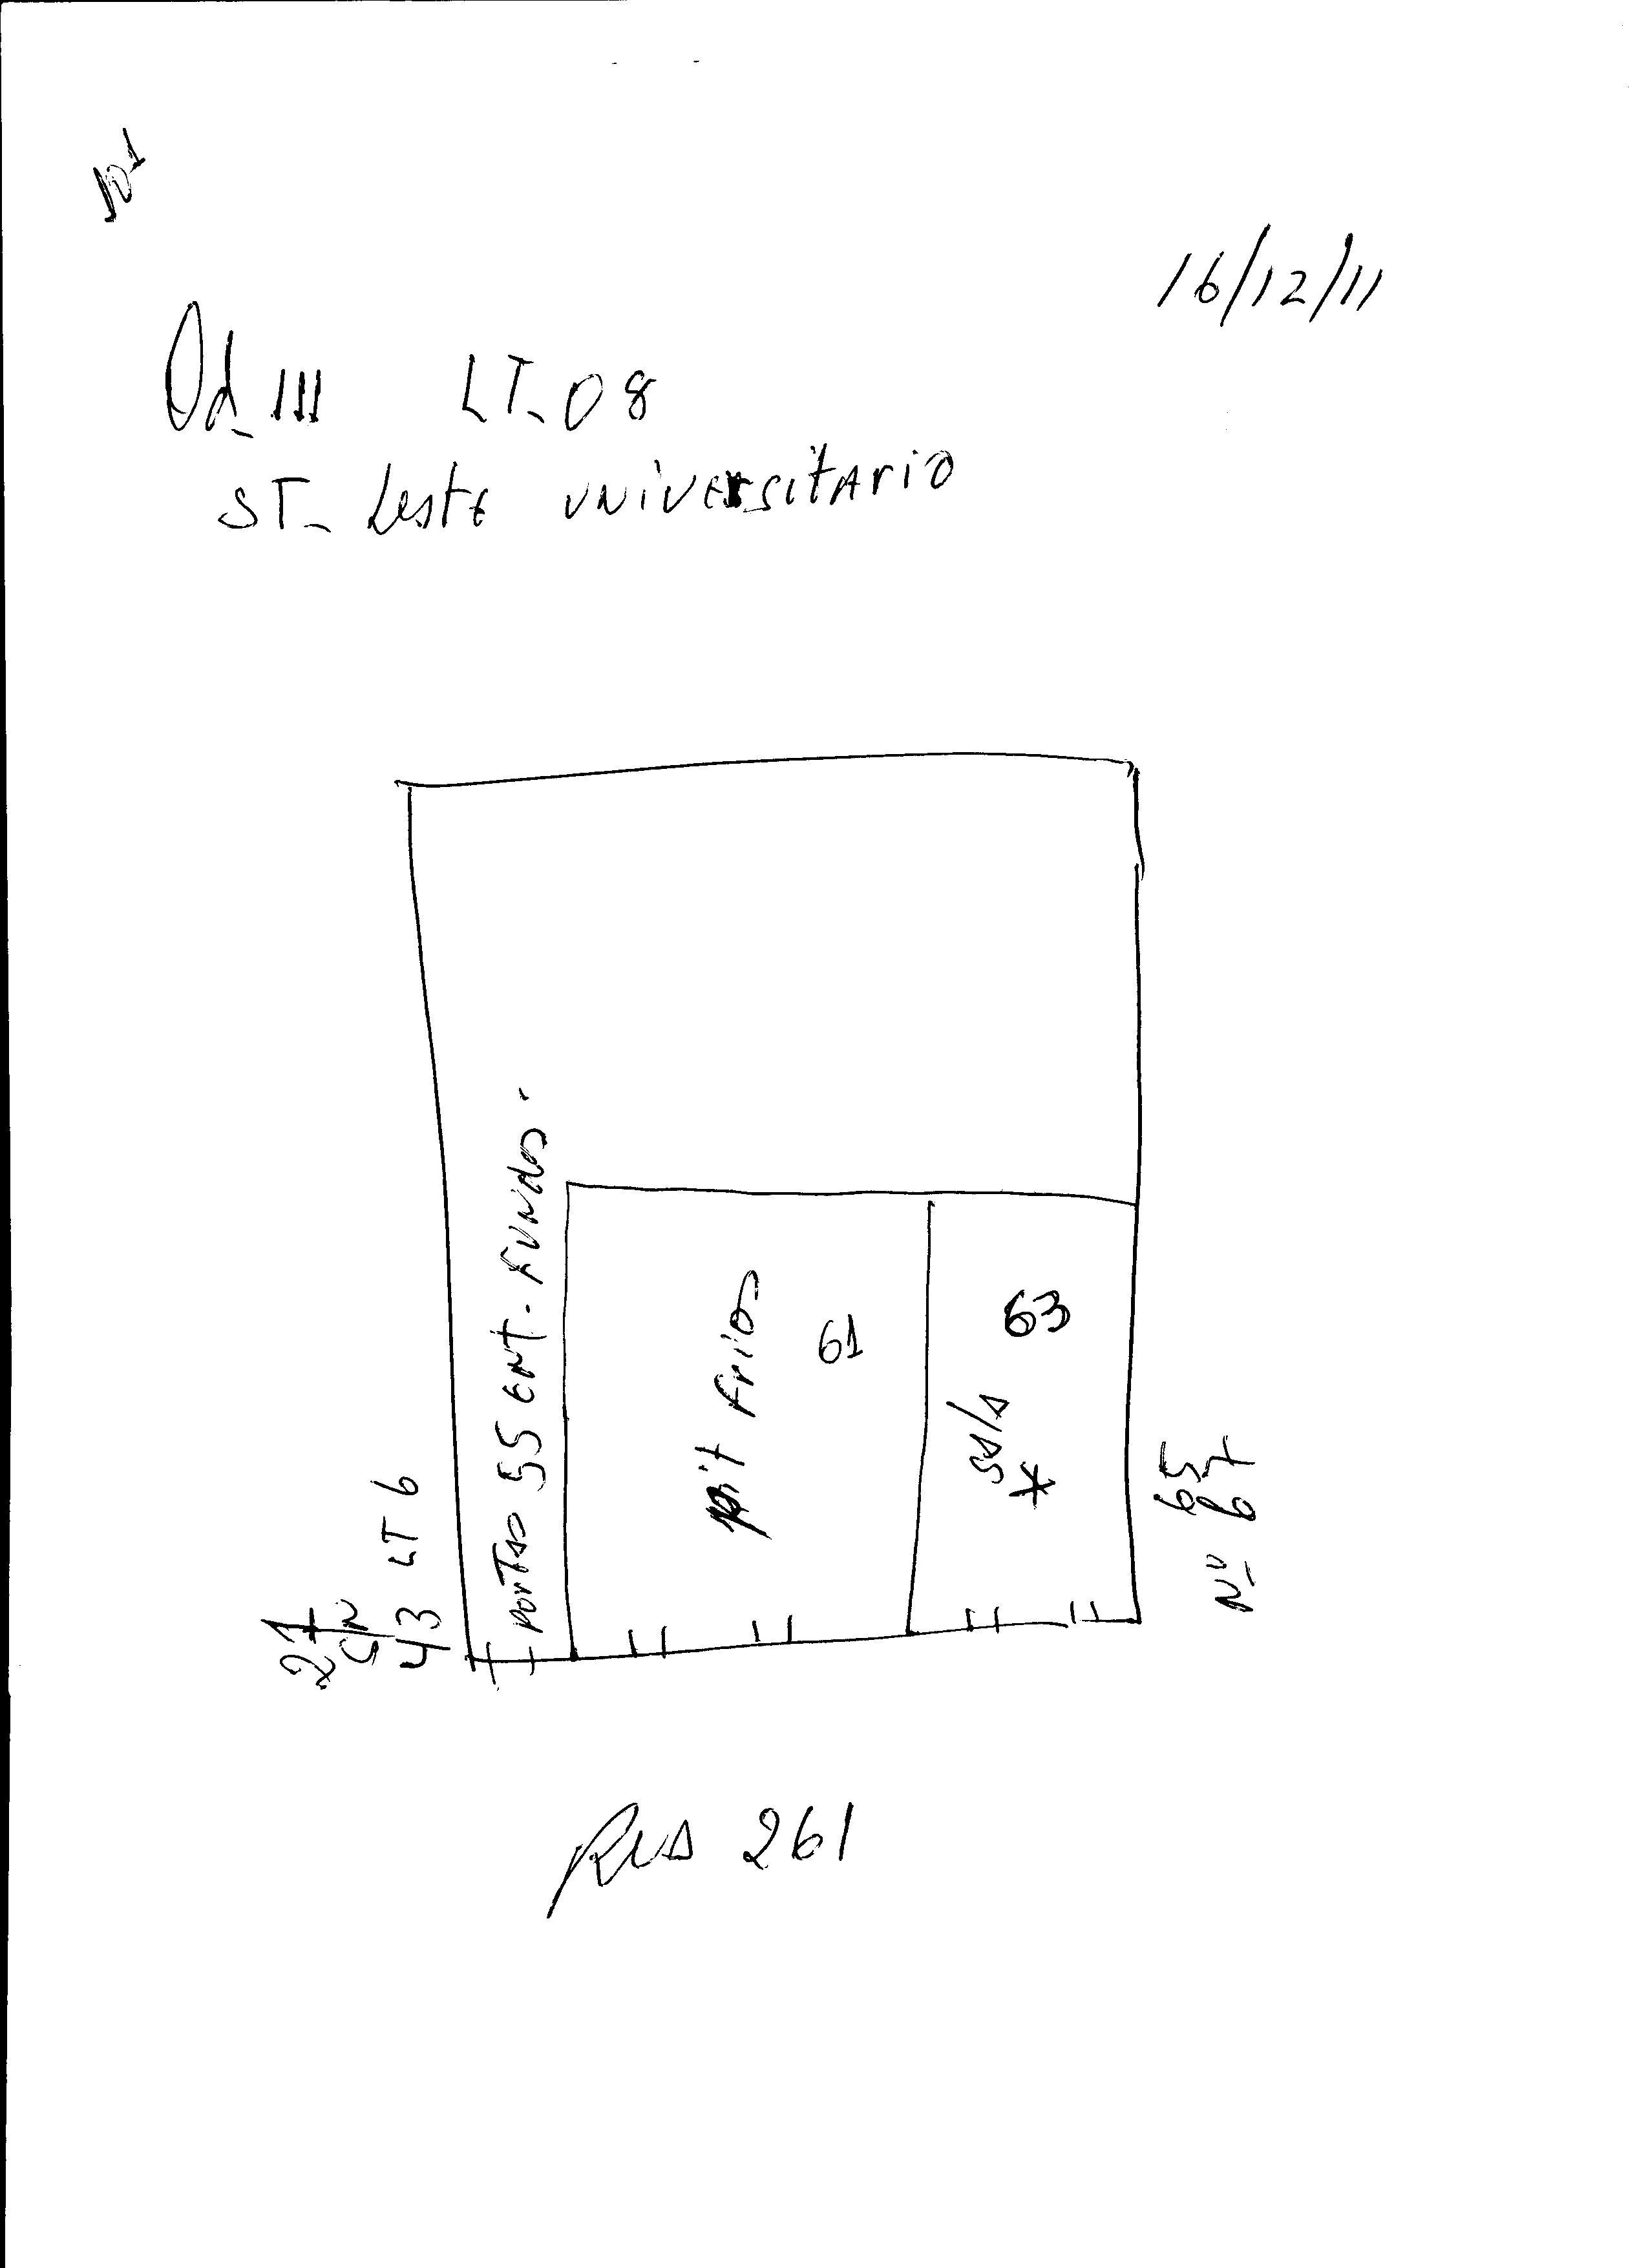 16/12/11
Qd_ 111 LT_ 08
ST_ Leste universitario
portao 55 ent. fundos.
pit frios
61
63
ss/s
43 LT 6
65
Nº 67
Rua 261